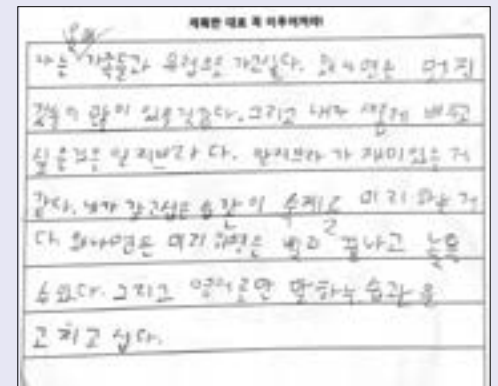 계획한 대로 꼭 이루어져라!
올해
나는 가족들과 유럽으로 가고싶다. 왜냐면은 멋진
것들이 많이 있을것같다. 그리고 내가 배우고
싶은것은 다. 가 재미있는 거
같다. 내가 갖고싶은 습관이 숙제를 미리 하는 거
다 왜냐면은 미리 하면은 빨리 끝나고 놀을
수있다. 그리고 영어로만 말하는 습관을
고치고 싶다.